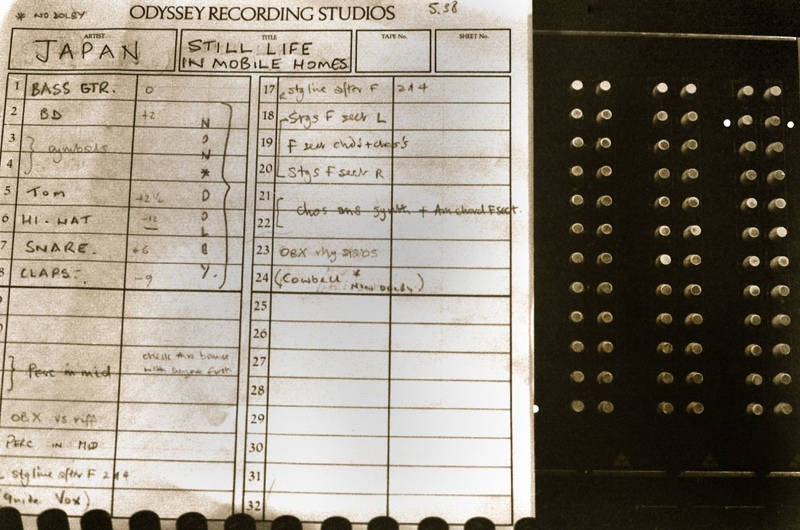 * NO DOLBY
ODYSSEY RECORDING STUDIOS
5.38
ARTIST
JAPAN
TITLE
STILL LIFE
IN MOBILE HOMES
TAPE No.
SHEET No.
1 BASS GTR. 0
2 BD +2
3
4 symbols
5 Tom +2½
6 HI. HAT -12
7 SNARE. +6
8 CLAPS. -9
NON * DOLBY.
Perc in mid
check this bounce
OBX vs riff
PERC IN MID
styline after F 2+4
Guide Vox)
17 styline after F 2+4
18 Stgs F sect L
19 F sect chds + chos's
20 Stgs F sect R
21
22 chos ans synth + Am chord F sect.
23 OBX rhy stabs
24 (Cowbell * NON DOLBY)
25
26
27
28
29
30
31
32